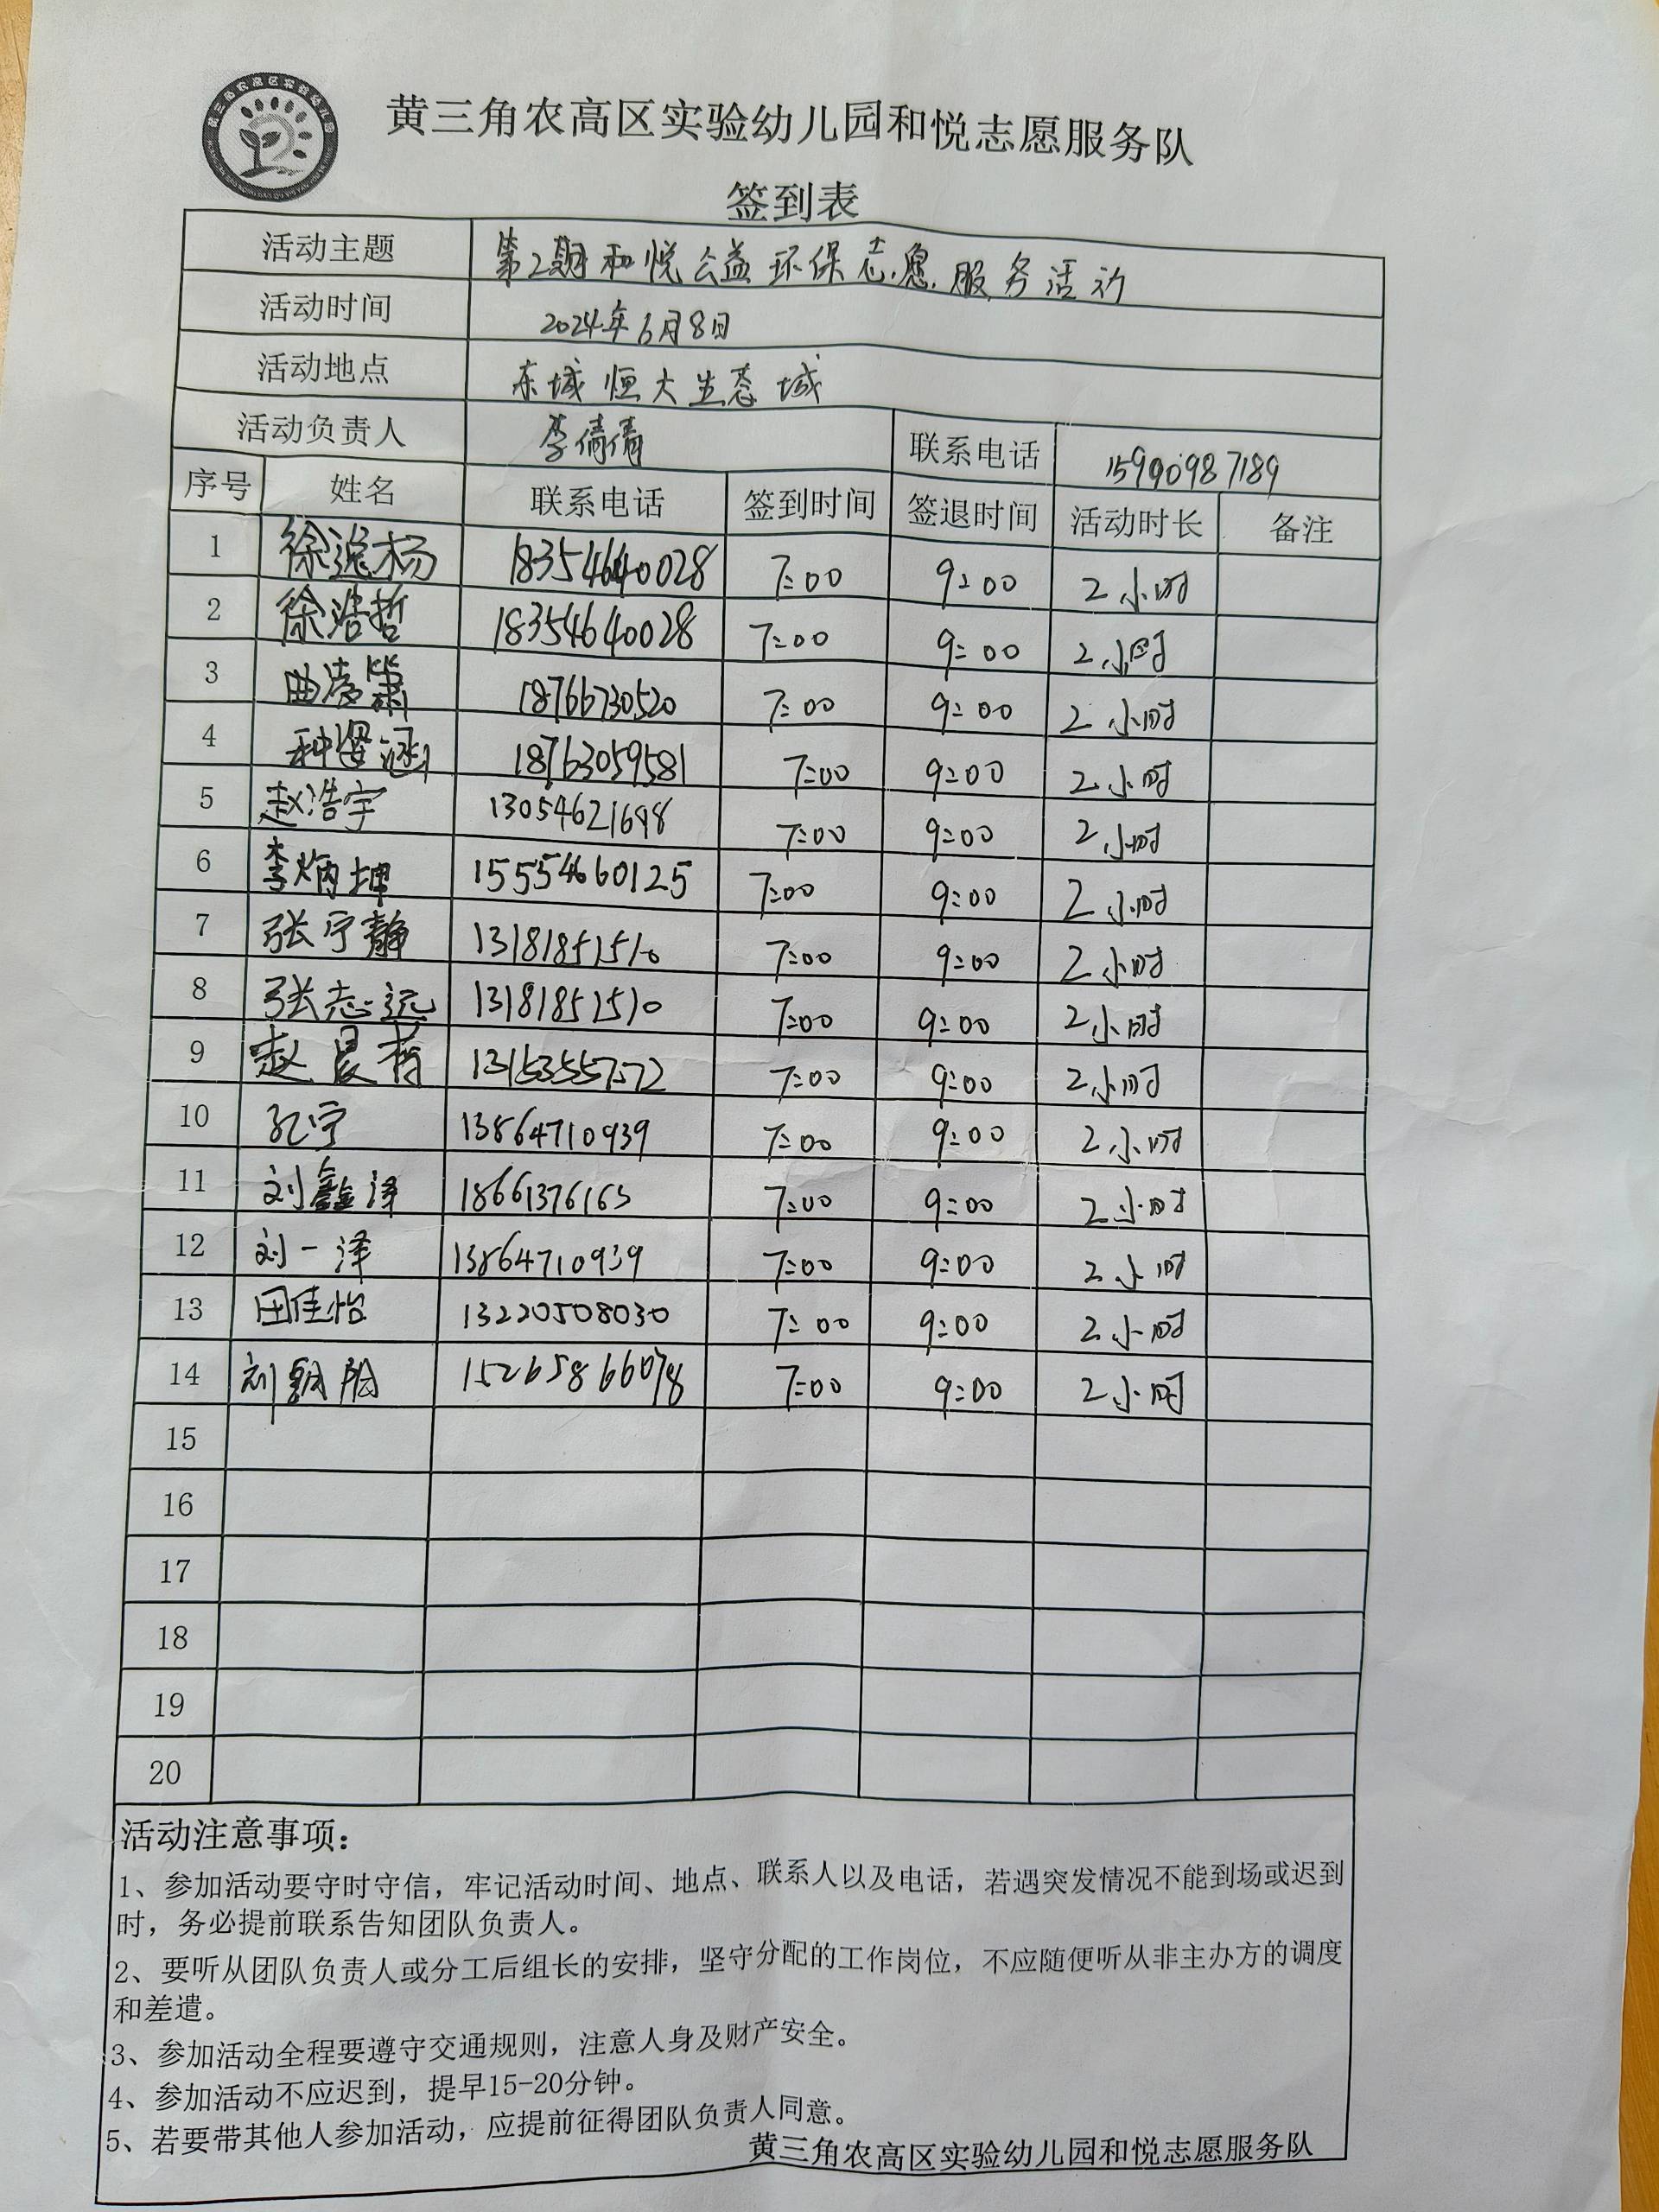 黄三角农高区实验幼儿园和悦志愿服务队
签到表
活动主题 第2期和悦公益环保志愿服务活动
活动时间 2024年6月8日
活动地点 东城恒大生态城
活动负责人 李倩倩 联系电话 15990987189
序号 姓名 联系电话 签到时间 签退时间 活动时长 备注
1 徐逸杨 18354640028 7:00 9:00 2小时
2 徐浩哲 18354640028 7:00 9:00 2小时
3 曲凌 18766730520 7:00 9:00 2小时
4 18763059581 7:00 9:00 2小时
5 赵浩宇 13054621698 7:00 9:00 2小时
6 李炳坤 15554660125 7:00 9:00 2小时
7 张宁静 13181851510 7:00 9:00 2小时
8 张志远 13181851510 7:00 9:00 2小时
9 赵晨 7:00 9:00 2小时
10 孔宁 13864710939 7:00 9:00 2小时
11 刘鑫泽 18661376165 7:00 9:00 2小时
12 刘一泽 13864710939 7:00 9:00 2小时
13 田佳怡 13220508030 7:00 9:00 2小时
14 刘朝阳 15265866078 7:00 9:00 2小时
15
16
17
18
19
20
活动注意事项：
1、参加活动要守时守信，牢记活动时间、地点、联系人以及电话，若遇突发情况不能到场或迟到
时，务必提前联系告知团队负责人。
2、要听从团队负责人或分工后组长的安排，坚守分配的工作岗位，不应随便听从非主办方的调度
和差遣。
3、参加活动全程要遵守交通规则，注意人身及财产安全。
4、参加活动不应迟到，提早15-20分钟。
5、若要带其他人参加活动，应提前征得团队负责人同意。
黄三角农高区实验幼儿园和悦志愿服务队